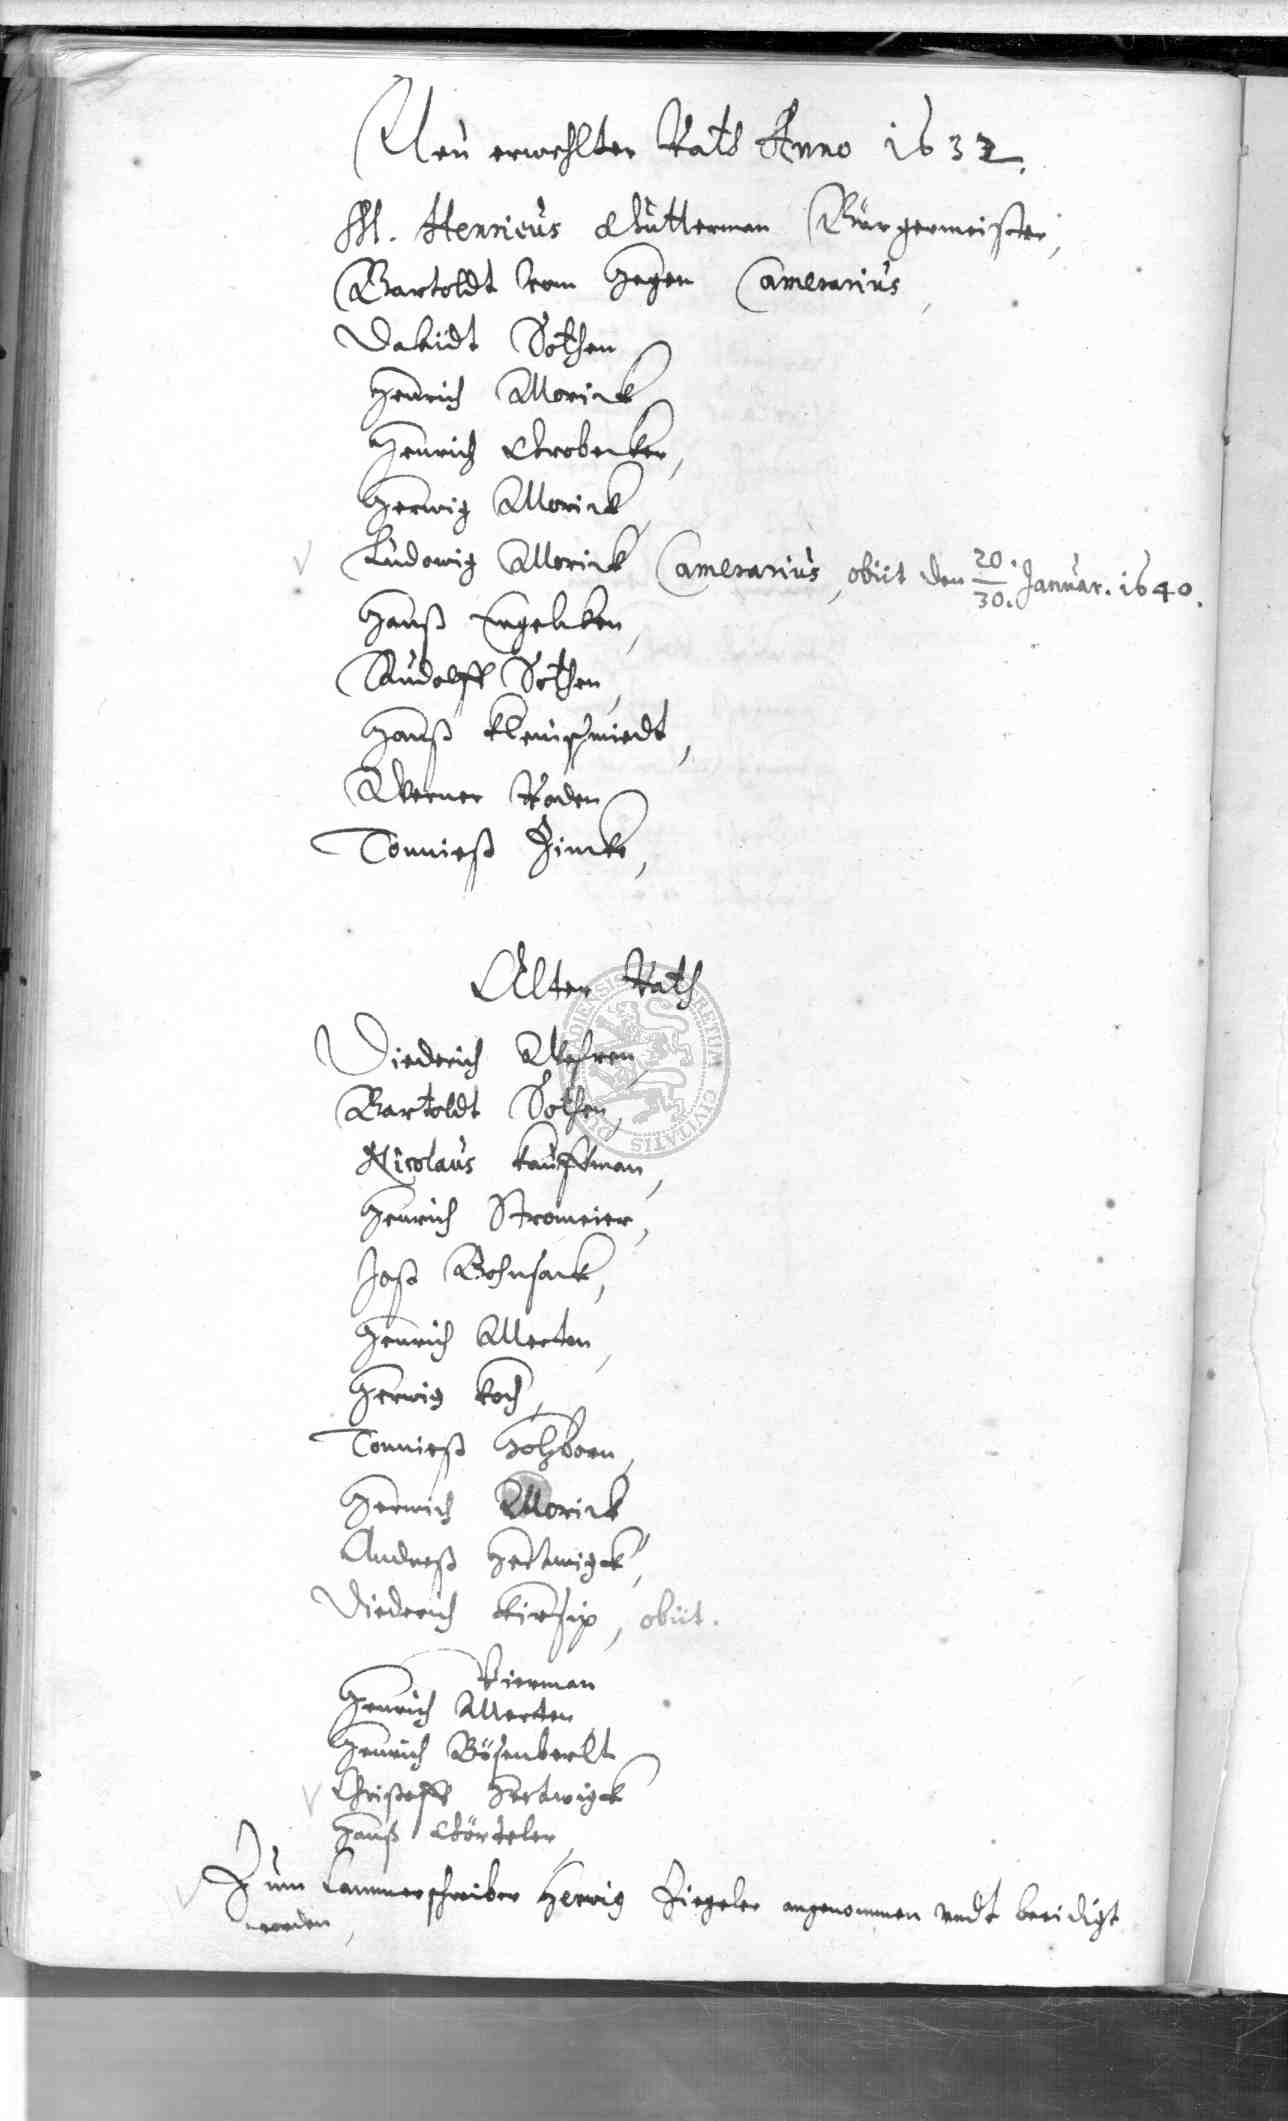 Neu erwehlter Rath Anno 1632.
M. Henricus Wütterman Bürgermeister,
Bartoldt vom Hagen Camerarius,
Davidt Sothen
Henrich Morick
Henrich Strobecker,
Herwig Morick
Ludowig Morick Camerarius, obiit den 20./30. Januar. 1640.
Hanß Engelcken,
Rudolff Sothen,
Hanß Kleinschmiedt,
Werner Roden
Tonnieß Zincke,
Alter Rath
Diederich Wehren
Bartoldt Sothen,
Nicolaus Kauffman,
Henrich Stromeier,
Jost Bohnsack,
Henrich Merten,
Herwig Koch,
Tonnieß Holzborn,
Herwich Morick,
Andreß Hertwigck,
Diederich , obiit.
Vierman
Henrich Merten
Henrich Bösenberlt
Christoff Hertwigck
Hanß Wörteler,
Zum Cammerschreiber Herwig Ziegeler angenommen undt beeidigt
worden,
SECRETUM CIVITATIS